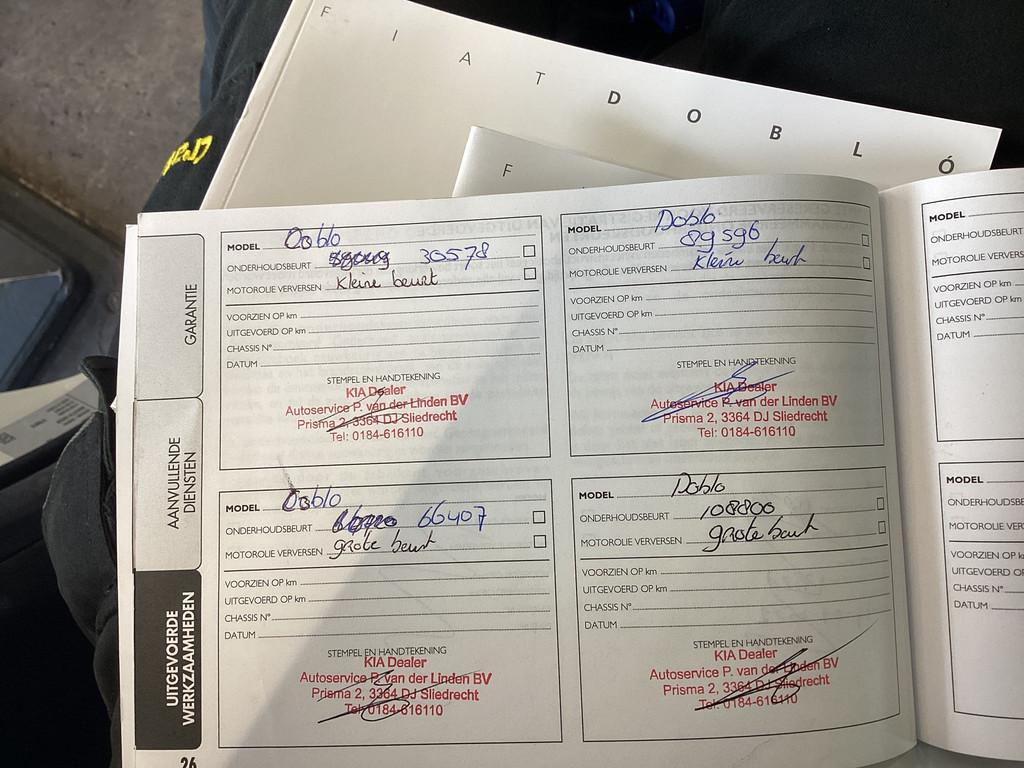 F I A T D O B L Ó
F
GARANTIE
AANVULLENDE
DIENSTEN
UITGEVOERDE
WERKZAAMHEDEN
26
MODEL Doblo
ONDERHOUDSBEURT 30578
MOTOROLIE VERVERSEN kleine beurt
VOORZIEN OP km
UITGEVOERD OP km
CHASSIS N°
DATUM
STEMPEL EN HANDTEKENING
KIA Dealer
Autoservice P. van der Linden BV
Prisma 2, 3364 DJ Sliedrecht
Tel: 0184-616110
MODEL Doblo
ONDERHOUDSBEURT 89596
MOTOROLIE VERVERSEN kleine beurt
VOORZIEN OP km
UITGEVOERD OP km
CHASSIS N°
DATUM
STEMPEL EN HANDTEKENING
KIA Dealer
Autoservice P. van der Linden BV
Prisma 2, 3364 DJ Sliedrecht
Tel: 0184-616110
MODEL Doblo
ONDERHOUDSBEURT 66407
MOTOROLIE VERVERSEN grote beurt
VOORZIEN OP km
UITGEVOERD OP km
CHASSIS N°
DATUM
STEMPEL EN HANDTEKENING
KIA Dealer
Autoservice P. van der Linden BV
Prisma 2, 3364 DJ Sliedrecht
Tel: 0184-616110
MODEL Doblo
ONDERHOUDSBEURT 108800
MOTOROLIE VERVERSEN grote beurt
VOORZIEN OP km
UITGEVOERD OP km
CHASSIS N°
DATUM
STEMPEL EN HANDTEKENING
KIA Dealer
Autoservice P. van der Linden BV
Prisma 2, 3364 DJ Sliedrecht
Tel: 0184-616110
MODEL
ONDERHOUDSBEURT
MOTOROLIE VERVERS
VOORZIEN OP km
UITGEVOERD OP k
CHASSIS N°
DATUM
MODEL
ONDERHOUDSB
MOTOROLIE VER
VOORZIEN OP k
UITGEVOERD O
CHASSIS N°
DATUM